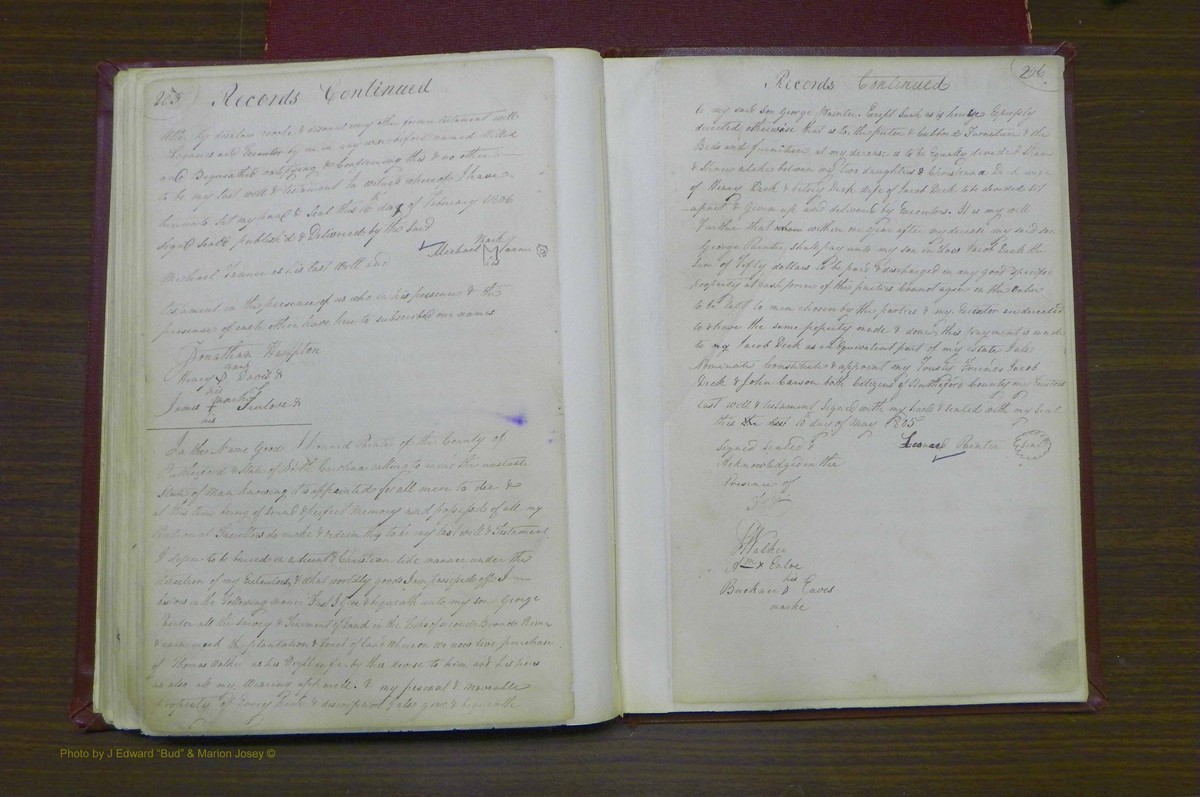 205 Records Continued
utterly disallow revoke & disannul every other former testament will
Legacies and Executor by me in any wise before named Willed
and Bequeathed ratifying & Confirming this & no other
to be my last will & testament In witness whereof I have
hereunto Set my hand & Seal this 10th day of February 1806
Signd Seald publish'd & Delivered by the Said
Michael
Michael as his last Will and
testament in the presence of us who in his presence & the
presence of each other have here to subscribed our names
Jonathan Hampton
Henry David
mark
his
James
mark
his
In the Name God I Leonard Painter of the County of
Rutherford & State of North Carolina calling to mind the unstable
State of Man knowing it is appointed for all men to die &
at this time being of Sound & perfect Memory and possessd of all my
Rational Faculties do make & ordain this to be my last will & Testament
I desire to be buried in a decent & Christian like manner under the
direction of my Executors, & what worldly goods I am possessed off I
in the Following manner First I Give & bequeath unto my son George
Painter all the Survey & Tenement of Land in the Forks of Broad River
& the plantation & tract of Land Whereon we now live purchase
of Thomas Walker by this devise to him and his heirs
as also all my Wearing apparell & my personal & moveable
property of Every kind & discription I also give & bequeath
206
Records Continued
to my said son George Painter Except Such as is hereby Expressly
directed otherwise that is to & Cubbord Furniture & the
Beds and furniture at my decease is to be Equally divided Share
& Share alike between my two daughters & Christeena Deck wife
of Henry Deck & Betsey Deck wife of Jacob Deck to be divided set
apart & Given up and delivered by Executors. It is my will
Further that within one year after my decease my said son
George Painter, shall pay unto my son in Law Jacob Deck the
Sum of Fifty dollars to be paid & discharged in any good
property at Cash price if the parties Cannot agree in the
to be left to men chosen by the parties & my Executor are directed
to have the same property made & done, this payment is made
to Jacob Deck as an Equivalent part of my estate I also
Nominate Constitute & appoint my Trusty Friends Jacob
Deck & John Carson both Citizens of Rutherford County my Executors
Last will & testament Signed with my hand & sealed with my Seal
this 10th day of May 1805
Signed Sealed & Leonard Painter Seal
Acknowledged in the
Presence of
Test
Walker
x Enloe
his
Buckner Eaves
marke
Photo by J Edward "Bud" & Marion Josey ©